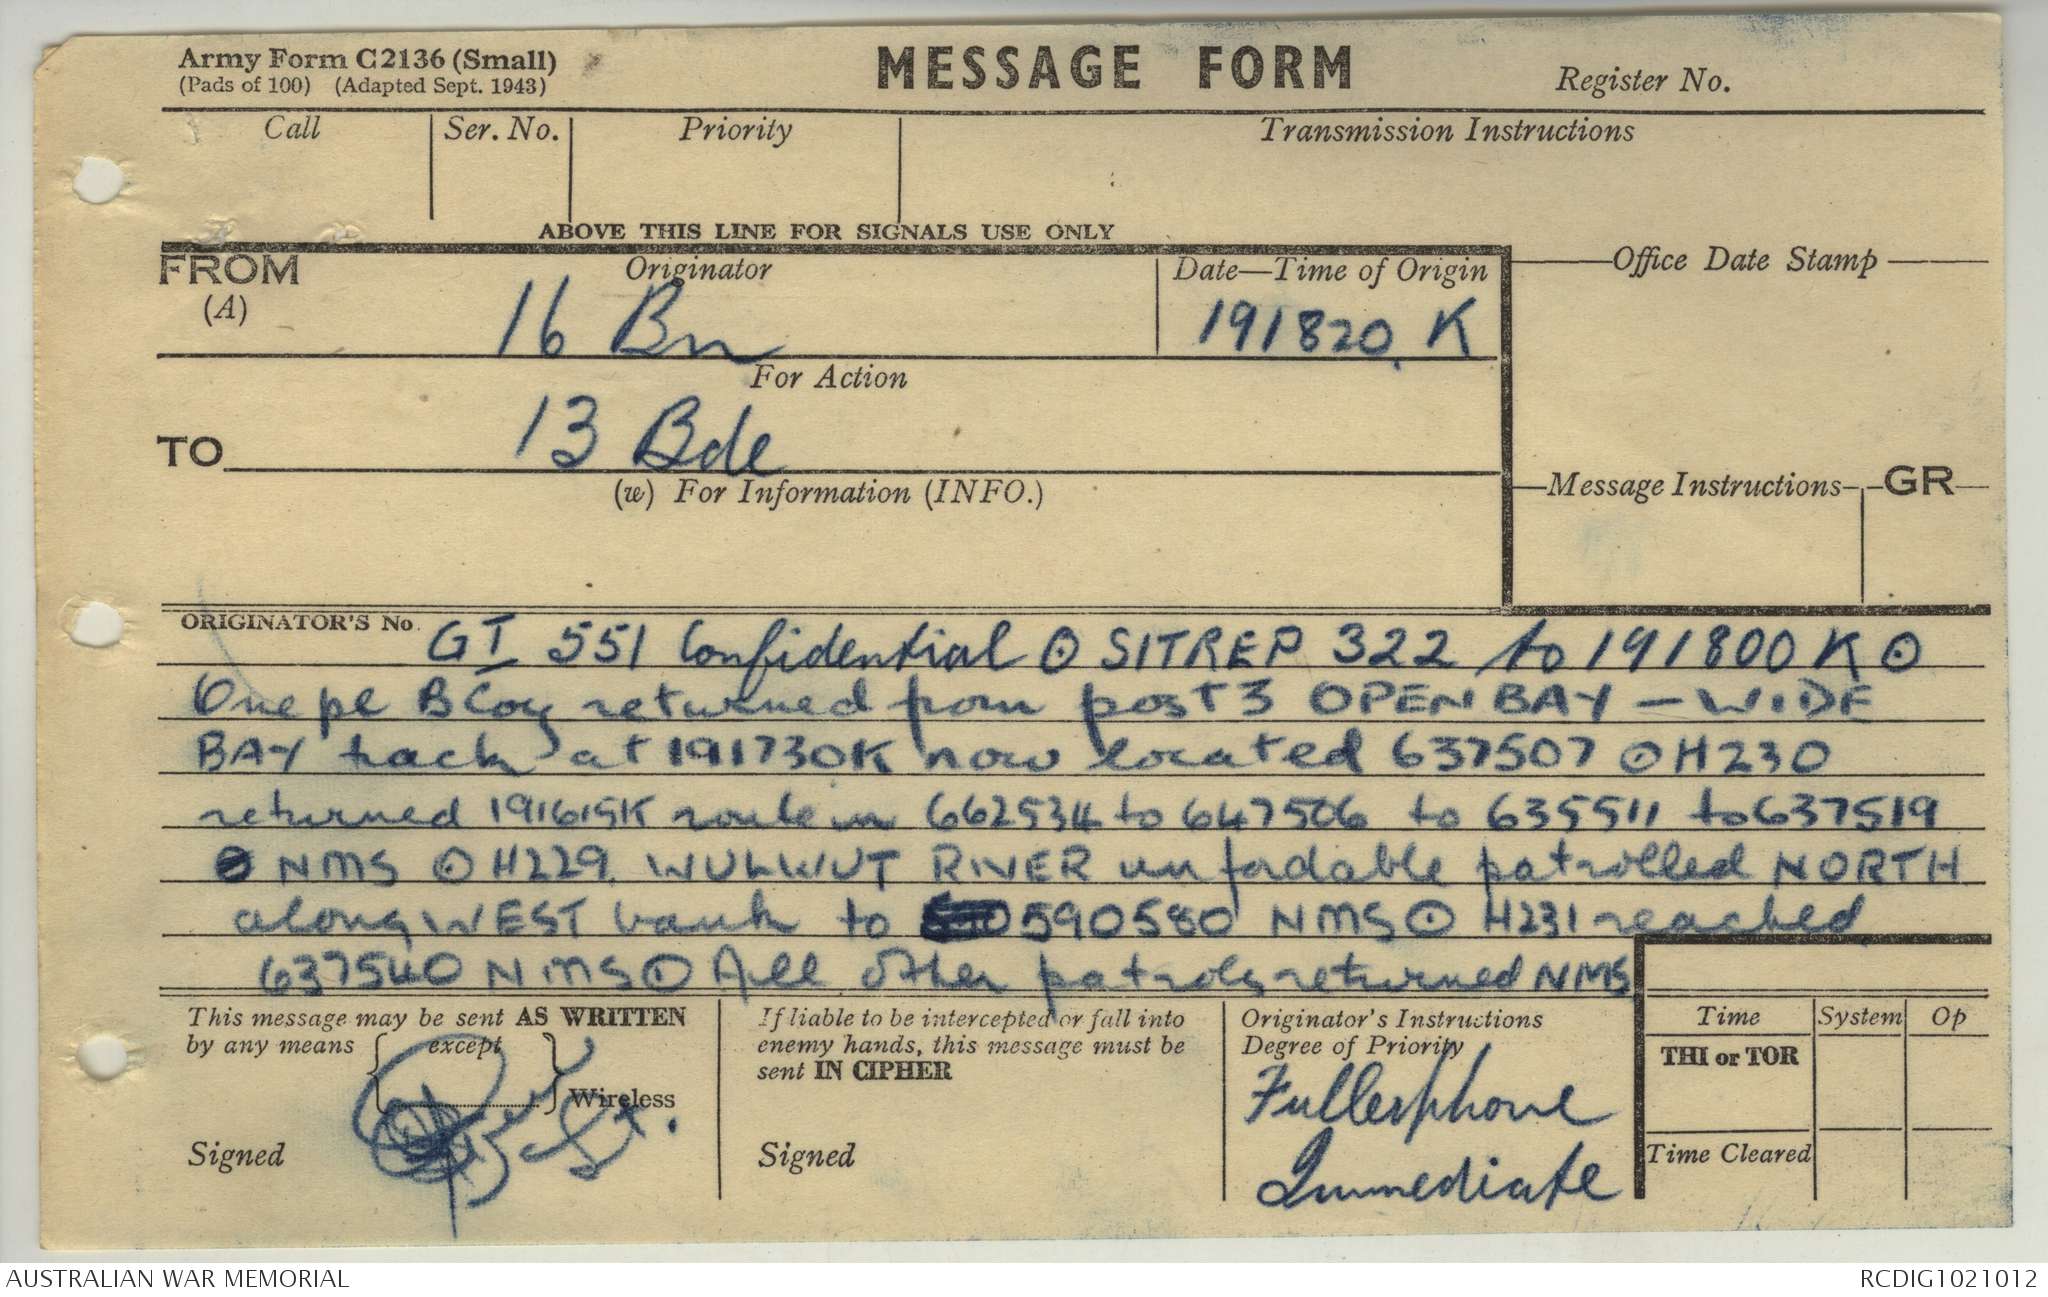 Army Form C2136 (Small)
(Pads of 100) (Adapted Sept. 1943)
MESSAGE FORM
Register No.
Call
Ser. No.
Priority
Transmission Instructions
ABOVE THIS LINE FOR SIGNALS USE ONLY
FROM
(A)
Originator
16 Bn
Date—Time of Origin
191820. K
Office Date Stamp
For Action
TO
13 Bde
(w) For Information (INFO.)
Message Instructions
GR
ORIGINATOR'S No. GI 551 Confidential ⊙ SITREP 322 to 191800K ⊙
One pl B Coy returned from post 3 OPEN BAY — WIDE
BAY track at 191730K now located 637507 ⊙ H230
returned 191615K route in 662534 to 647506 to 635511 to 637519
⊙ NMS ⊙ H229. WULWUT RIVER unfordable patrolled NORTH
along WEST bank to 590580 NMS ⊙ H231 reached
637540 NMS ⊙ All other patrols returned NMS
This message may be sent AS WRITTEN
by any means except
Wireless
Signed
If liable to be intercepted or fall into
enemy hands, this message must be
sent IN CIPHER
Signed
Originator's Instructions
Degree of Priority
Fullerphone
Immediate
Time
System
Op
THI or TOR
Time Cleared
AUSTRALIAN WAR MEMORIAL
RCDIG1021012